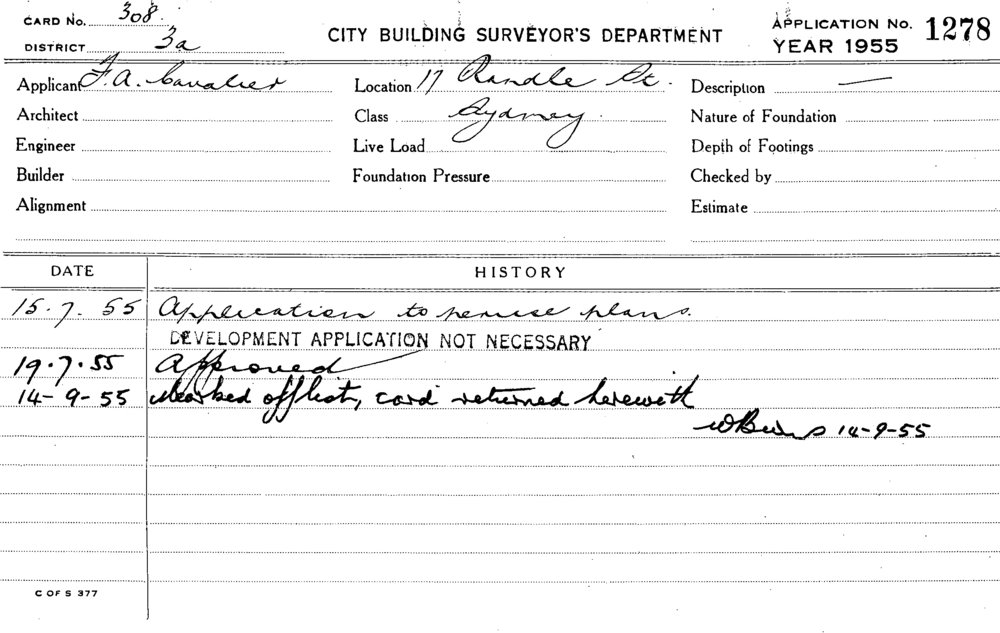 CARD No. 308.
DISTRICT 3a
CITY BUILDING SURVEYOR'S DEPARTMENT
APPLICATION No. 1278
YEAR 1955
Applicant F. A. Cavalier Location 17 Randle St. Description —
Architect Class Sydney. Nature of Foundation
Engineer Live Load Depth of Footings
Builder Foundation Pressure Checked by
Alignment Estimate
DATE HISTORY
15.7.55 Application to peruse plans.
DEVELOPMENT APPLICATION NOT NECESSARY
19.7.55 Approved
14-9-55 Marked off list, card returned herewith
14-9-55
C OF S 377